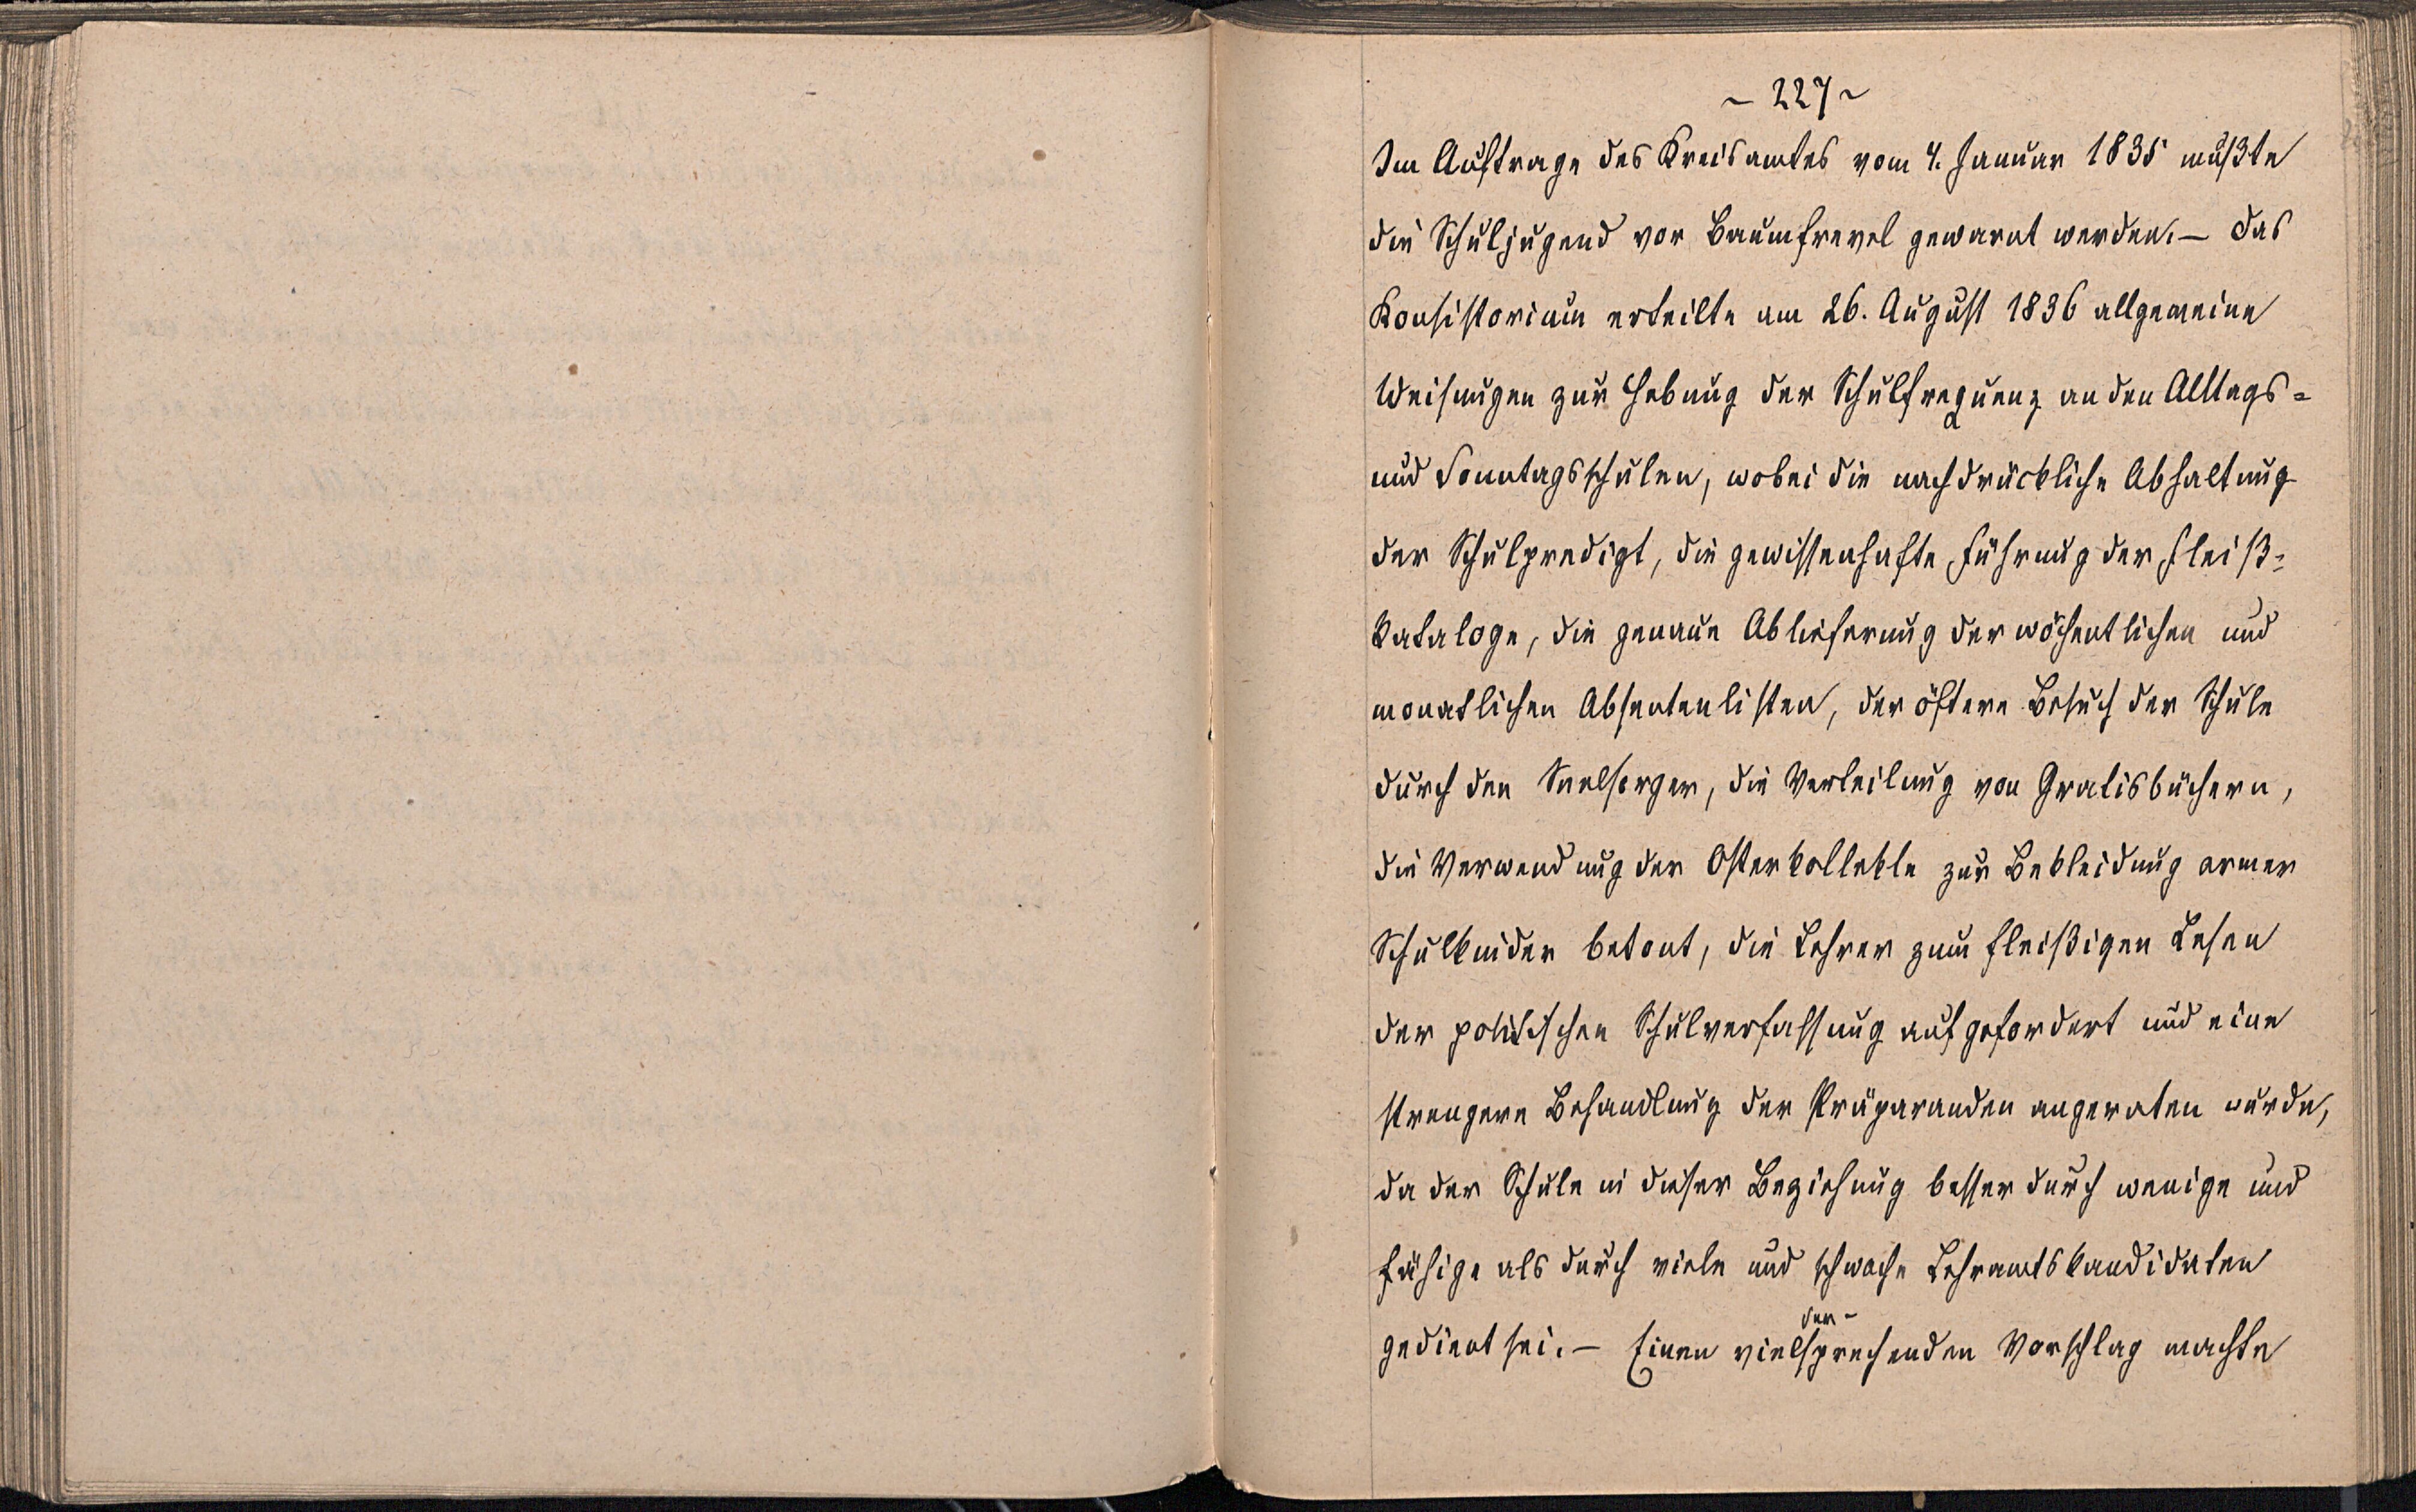 ~ 227 ~
Im Auftrage des Kreisamtes vom 4. Januar 1835 mußte
die Schuljugend vor Baumfrevel gewarnt werden. — Das
Konsistorium erteilte am 26. August 1836 allgemeine
Weisungen zur Hebung der Schulfrequenz an den Alltags=
und Sonntagsschulen, wobei die nachdrückliche Abhaltung
der Schulpredigt, die gewissenhafte Führung der Fleiß=
kataloge, die genaue Ablieferung der wöchentlichen und
monatlichen Absentenlisten, der öftere Besuch der Schule
durch den Seelsorger, die Verteilung von Gratisbüchern,
die Verwendung der Osterkollekte zur Bekleidung armer
Schulkinder betont, die Lehrer zum fleißigen Lesen
der politischen Schulverfassung aufgefordert und eine
strengere Behandlung der Präparanden angeraten wurde,
da der Schule in dieser Beziehung besser durch wenige und
fähige als durch viele und schwache Lehramtskandidaten
gedient sei. — Einen vielsprechenden Vorschlag machte